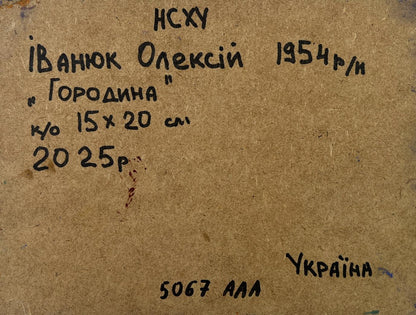 НСХУ
Іванюк Олексій 1954 р/н
„Городина"
к/о 15×20 см
2025р
Україна
5067 ААА